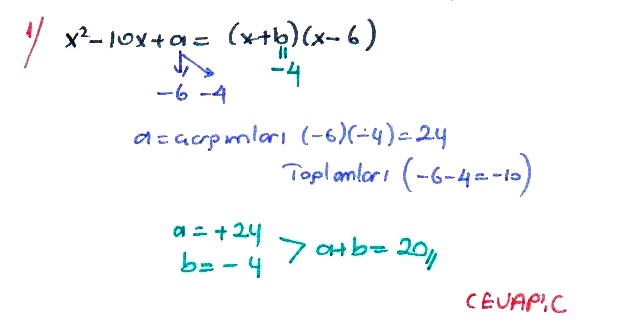 1) x²-10x+a = (x+b)(x-6)
-6 -4
=
-4
a = çarpımları (-6)(-4)=24
Toplamları (-6-4=-10)
a = +24
b = -4
> a+b = 20//
CEVAP: C